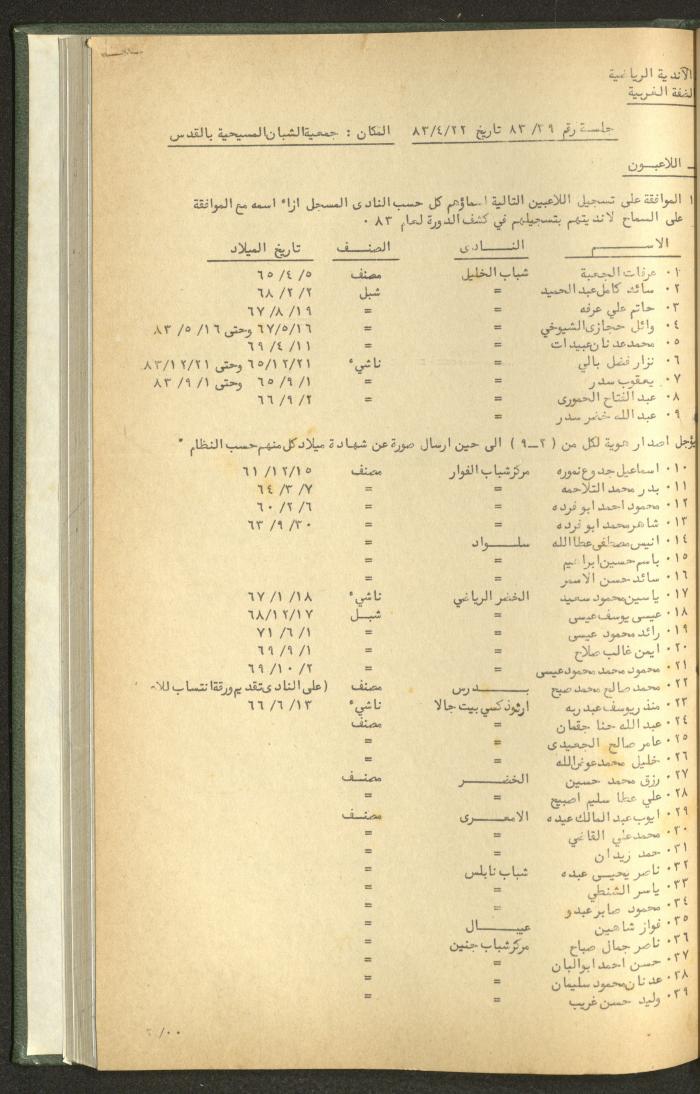 الأندية الرياضية
الضفة الغربية
جلسة رقم ٨٣/٣٩ تاريخ ٨٣/٤/٢٢ المكان : جمعية الشبان المسيحية بالقدس
ـ اللاعبــون
١ الموافقة على تسجيل اللاعبين التالية اسماؤهم كل حسب النادى المسجل ازاء اسمه مع الموافقة
على السماح لانديتهم بتسجيلهم في كشف الدورة لعام ٨٣ ٠
الاســـم النــادى الصنــف تاريخ الميلاد
٠١ عرفات الجعبة شباب الخليل مصنف ٥ /٤ /٦٥
٠٢ سائد كامل عبد الحميد = شبل ٢ /٢ /٦٨
٠٣ حاتم علي عرفه = = ١٩ /٨ /٦٧
٠٤ وائل حجازى الشيوخي = = ٦٧/٥/١٦ وحتى ١٦ /٥ /٨٣
٠٥ محمد عدنان عبيدات = = ١١ /٤ /٦٩
٠٦ نزار فضل بالي = ناشيء ٦٥/١٢/٢١ وحتى ٨٣/١٢/٢١
٠٧ يعقوب سدر = = ١ /٩ /٦٥ وحتى ١ /٩ /٨٣
٠٨ عبد الفتاح الحمورى = = ٢ /٩ /٦٦
٠٩ عبد الله خضر سدر = =
يؤجل اصدار هوية لكل من (٢ــ٩) الى حين ارسال صورة عن شهادة ميلاد كل منهم حسب النظام "
٠١٠ اسماعيل جدوع نموره مركز شباب الفوار مصنف ٦١/١٢/١٥
٠١١ بدر محمد التلاحمه = = ٧ /٣ /٦٤
٠١٢ محمود احمد ابو فرده = = ٢ /٦ /٦٠
٠١٣ شاهر محمد ابو فرده = = ٣٠ /٩ /٦٣
٠١٤ انيس مصطفى عطا الله سلـــواد =
٠١٥ باسم حسين ابراهيم = =
٠١٦ سائد حسن الاسمر = =
٠١٧ ياسين محمود سعيد الخضر الرياضي ناشيء ١٨ /١ /٦٧
٠١٨ عيسى يوسف عيسى = شبــل ٦٨/١٢/١٧
٠١٩ رائد محمود عيسى = = ١ /٦ /٧١
٠٢٠ ايمن غالب صلاح = = ١ /٩ /٦٩
٠٢١ محمود محمد محمود عيسى = = ٢ /١٠ /٦٩
٠٢٢ محمد صالح محمد صبح بــــدرس مصنف (على النادى تقديم ورقة انتساب
٠٢٣ منذر يوسف عبد ربه ارثوذكسي بيت جالا ناشيء ١٣ /٦ /٦٦
٠٢٤ عبد الله حنا جقمان = مصنف
٠٢٥ عامر صالح الجعيدى = =
٠٢٦ خليل محمد عوض الله = =
٠٢٧ رزق محمد حسين الخضــــر مصنــف
٠٢٨ علي عطا سليم اصبيح = =
٠٢٩ ايوب عبد المالك عبده الامعــــرى مصنــف
٠٣٠ محمد علي القاضي = =
٠٣١ حمد زيدان = =
٠٣٢ ناصر يحيــى عبده شباب نابلس =
٠٣٣ ياسر الشنطي = =
٠٣٤ محمود صابر عبدو = =
٠٣٥ فواز شاهين عيبــــال =
٠٣٦ ناصر جمال صباح مركز شباب جنين =
٠٣٧ حسن احمد ابو البان = =
٠٣٨ عدنان محمود سليمان = =
٠٣٩ وليد حسن غريب = =